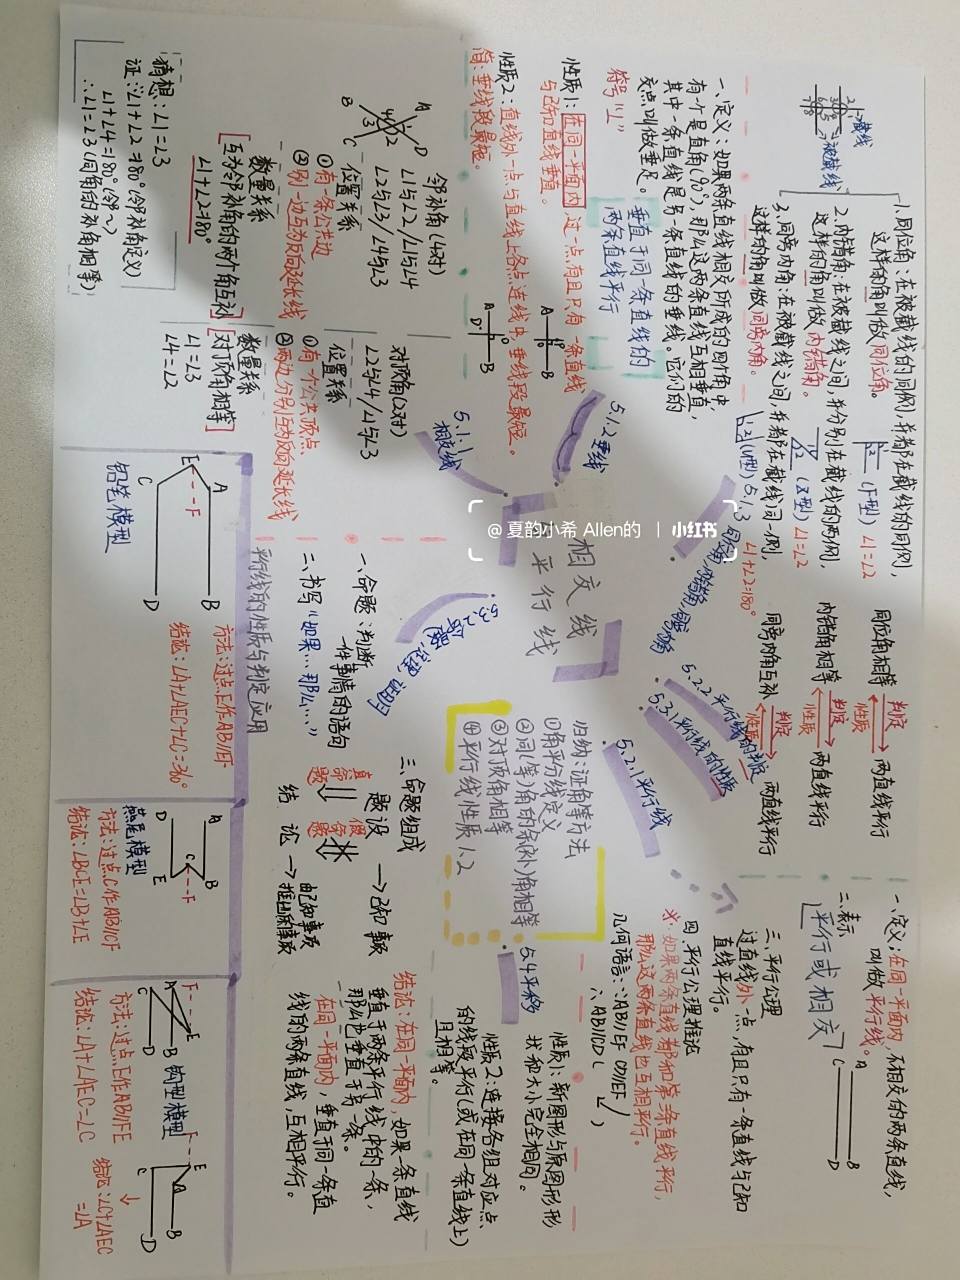 相交线
平行线
@ 夏韵小希 Allen的 | 小红书
5.1.1
相交线
邻补角(4对)
∠1与∠2/∠1与∠4
∠2与∠3/∠4与∠3
位置关系
①有一条公共边
②另一边互为反向延长线
数量关系
[互为邻补角的两个角互补]
∠1+∠2=180°
猜想:∠1=∠3
证:∵∠1+∠2=180°(邻补角定义)
∠1+∠4=180°(邻~)
∴∠1=∠3(同角的补角相等)
对顶角(2对)
∠2与∠4/∠1与∠3
位置关系
①有一个公共顶点
②两边分别互为反向延长线
数量关系
[对顶角相等]
∠1=∠3
∠4=∠2
5.1.2 垂线
一、定义:如果两条直线相交所成的四个角中,
有一个是直角(90°),那么这两条直线互相垂直,
其中一条直线是另一条直线的垂线,它们的
交点叫做垂足。
符号"⊥"
垂直于同一条直线的
两条直线平行
性质1:在同一平面内,过一点,有且只有一条直线
与已知直线垂直。
性质2:直线外一点与直线上各点连线中,垂线段最短。
简:垂线段最短。
5.1.3
同位角、内错角、同旁内角
截线
被截线
1.同位角:在被截线的同侧,并都在截线的同侧,
这样的角叫做同位角。
(F型)∠1=∠2
2.内错角:在被截线之间,并分别在截线的两侧,
这样的角叫做内错角。
(Z型)∠1=∠2
3.同旁内角:在被截线之间,并都在截线同一侧,
这样的角叫做同旁内角。
(U型)
∠1+∠2=180°
5.2.2 平行线的判定
5.3.1 平行线的性质
同位角相等 判定 性质 两直线平行
内错角相等 判定 性质 两直线平行
同旁内角互补 判定 性质 两直线平行
5.2.1 平行线
一、定义:在同一平面内,不相交的两条直线,
叫做平行线。
二、表示
平行或相交
三、平行公理
过直线外一点,有且只有一条直线与已知
直线平行。
四、平行公理推论
※:如果两条直线都和第三条直线平行,
那么这两条直线也互相平行。
几何语言:∵AB//EF CD//EF
∴AB//CD
5.4 平移
性质1:新图形与原图形形
状和大小完全相同。
性质2:连接各组对应点
的线段平行(或在同一条直线上)
且相等。
归纳:证角等方法
①角平分线定义
②同(等)角的余(补)角相等
③对顶角相等
④平行线性质1.2
5.3.2
一、命题:判断
一件事情的语句
二、书写"如果…那么…"
三、命题组成
题设→已知事项
真命题
假命题
结论→由已知事项
推出的事项
结论:在同一平面内,如果一条直线
垂直于两条平行线中的一条,
那么也垂直于另一条。
在同一平面内,垂直于同一条直
线的两条直线,互相平行。
平行线的性质与判定应用
铅笔模型
方法:过点E作AB//EF
结论:∠A+∠AEC+∠C=360°
燕尾模型
方法:过点C作AB//CF
结论:∠BCE=∠B+∠E
钩型模型
方法:过点E作AB//FE
结论:∠A+∠AEC=∠C
结论:∠C+∠AEC
=∠A